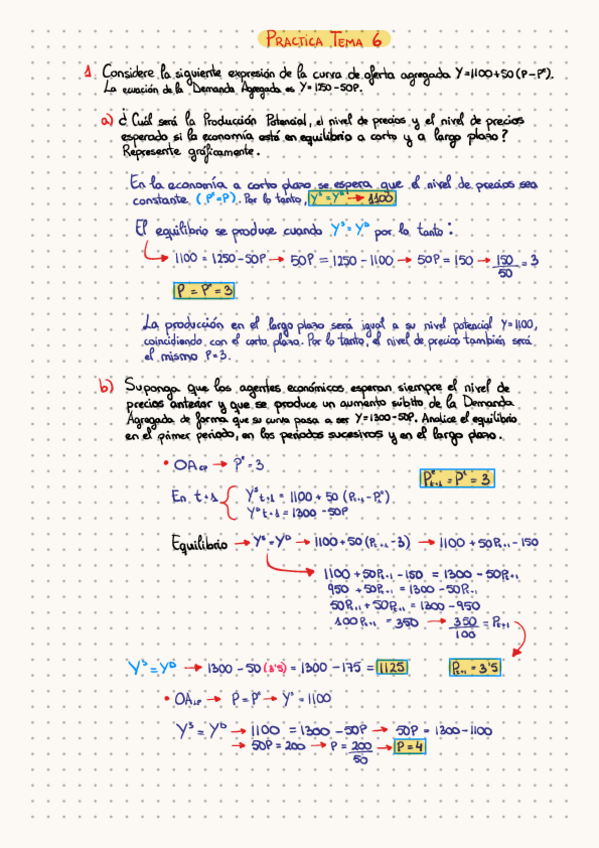 PRÁCTICA TEMA 6
1. Considere la siguiente expresión de la curva de oferta agregada Y=1100+50(P-Pᵉ).
La ecuación de la Demanda Agregada es Y=1250-50P.
a) ¿Cuál será la Producción Potencial, el nivel de precios y el nivel de precios
esperado si la economía está en equilibrio a corto y a largo plazo?
Represente gráficamente.
En la economía a corto plazo se espera que el nivel de precios sea
constante. (Pᵉ=P). Por lo tanto, Yˢ=Yᴰ → 1100
El equilibrio se produce cuando Yˢ=Yᴰ por lo tanto:
1100 = 1250-50P → 50P = 1250-1100 → 50P = 150 → 150/50 = 3
P = Pᵉ = 3
La producción en el largo plazo será igual a su nivel potencial Y=1100,
coincidiendo con el corto plazo. Por lo tanto, el nivel de precios también será
el mismo P=3.
b) Suponga que los agentes económicos esperan siempre el nivel de
precios anterior y que se produce un aumento súbito de la Demanda
Agregada de forma que su curva pasa a ser Y=1300-50P. Analice el equilibrio
en el primer periodo, en los periodos sucesivos y en el largo plazo.
• OAcp → Pᵉ=3
Pᵉt+1 = Pᵗ = 3
En t+1 { Yˢt+1 = 1100 + 50 (Pt+1 - Pᵉ)
Yᴰt+1 = 1300 - 50P
Equilibrio → Yˢ=Yᴰ → 1100+50(Pt+1-3) → 1100 + 50Pt+1 - 150
1100 + 50Pt+1 - 150 = 1300 - 50Pt+1
950 + 50Pt+1 = 1300 - 50Pt+1
50Pt+1 + 50Pt+1 = 1300 - 950
100Pt+1 = 350 → 350/100 = Pt+1
Yˢ=Yᴰ → 1300 - 50(3'5) = 1300 - 175 = 1125
Pt+1 = 3'5
• OALP → P=Pᵉ → Yˢ=1100
Yˢ = Yᴰ → 1100 = 1300 - 50P → 50P = 1300-1100
→ 50P = 200 → P = 200/50 → P=4